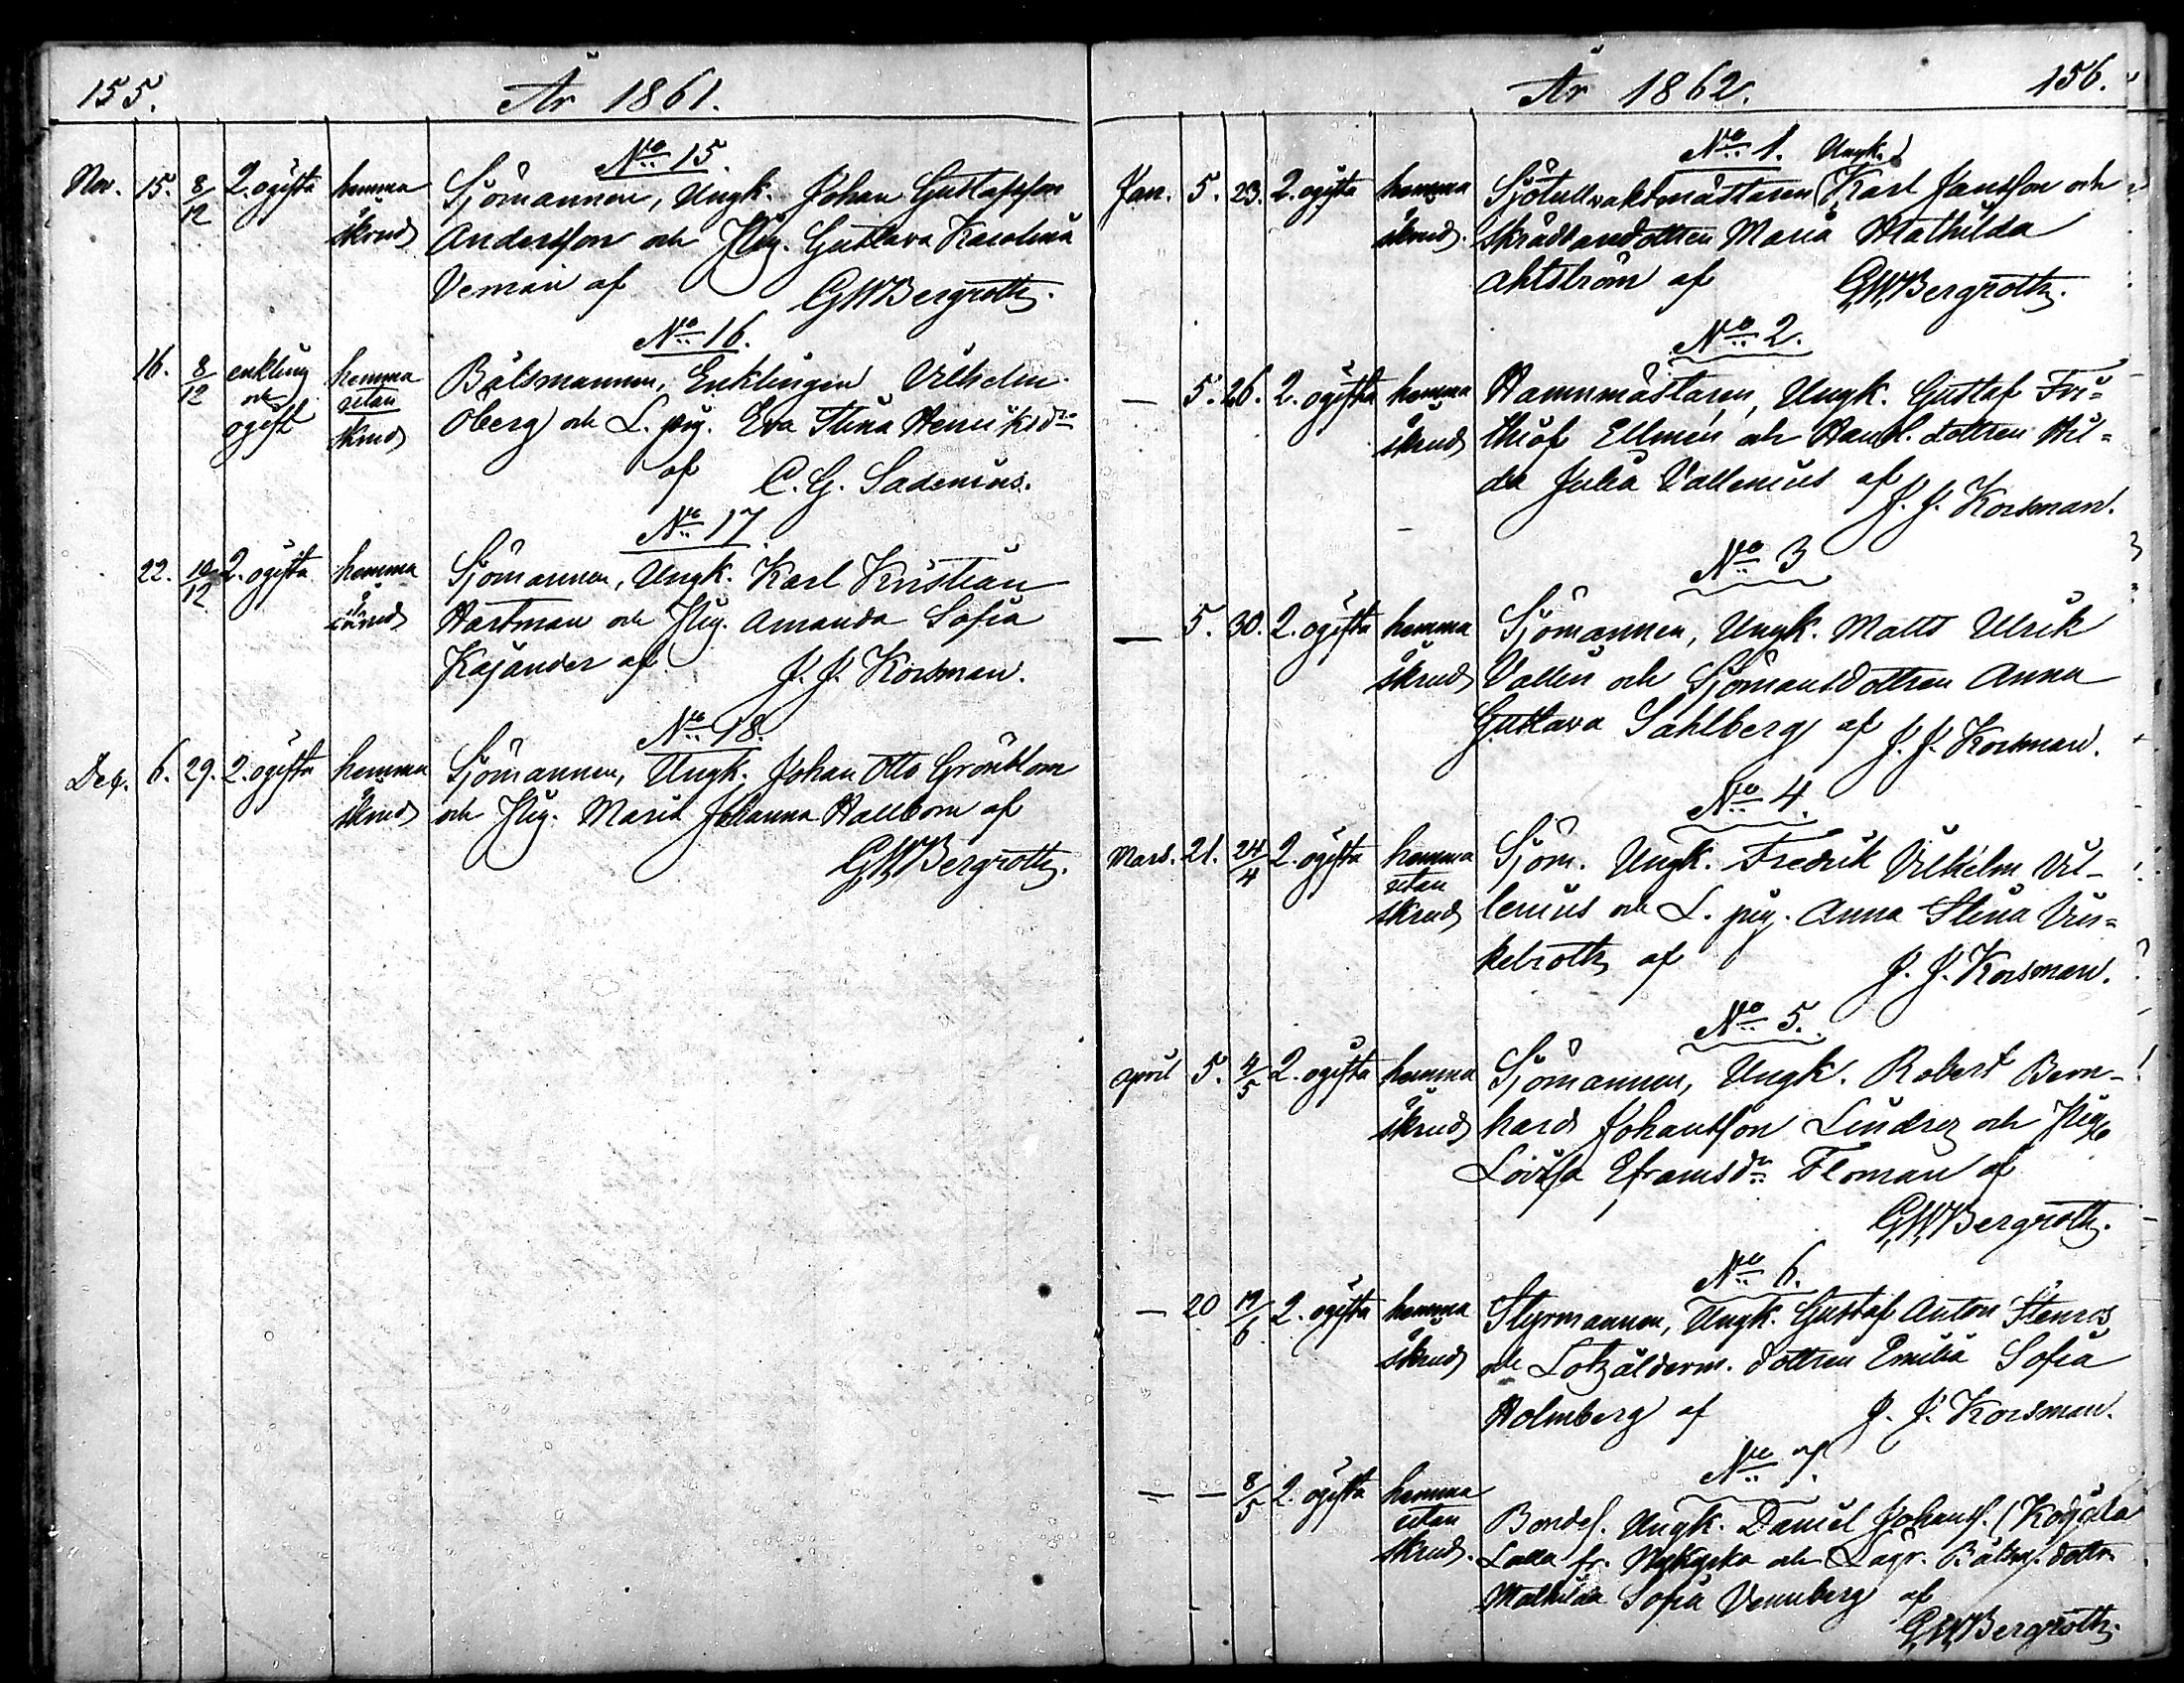 155.
År 1861.
No 15.
Nov. 15. 8/12 2. ogifta hemma Sjömannen, Ungk. Johan Gustafsson
skrud Andersson och Pig. Gustava Karolina
Veman af GWBergroth.
No 16.
16. 8/12 enkling hemma Båtsmannen, Enklingen Vilhelm
och utan Öberg och L. pig. Eva Stina Henriksdr
ogift skrud
af C. G. Sadenius.
No 17.
22. 10/12 2. ogifta hemma Sjömannen, Ungk. Karl Kristian
skrud Hartman och Pig. Amanda Sofia
Kajander af J. J. Korsman.
No 18.
Dec. 6. 29. 2. ogifta hemma Sjömannen, Ungk. Johan Otto Grönblom
skrud och Pig. Maria Johanna Hallbom af
GWBergroth.
År 1862.
156.
No 1. Ungk.
Jan. 5. 23. 2. ogifta hemma Sjötullvaktmästaren Karl Jansson och
skrud. Skräddaredottren Maria Mathilda
Ahlström af GWBergroth.
No 2.
— 5. 26. 2. ogifta hemma Hamnmästaren, Ungk. Gustaf Fri=
skrud thiof Ellmén och Handl. dottren Hil=
da Julia Vallenius af
J. J. Korsman.
No 3
— 5. 30. 2. ogifta hemma Sjömannen, Ungk. Matts Ulrik
skrud Vallin och Sjömansdottren Anna
Gustava Sahlberg af J. J. Korsman.
No 4.
Mars. 21. 24/4 2. ogifta hemma Sjöm. Ungk. Fredrik Vilhelm Vil-
utan
skrud lenius och L. pig. Anna Stina Vin=
kelroth af J. J. Korsman.
No 5.
April 5. 4/5 2. ogifta hemma Sjömannen, Ungk. Robert Bern-
skrud hard Johansson Lindroz och Pig.
Lovisa Eframsdr Floman af
GWBergroth.
No 6.
— 20 19/6 2. ogifta hemma Styrmannen, Ungk. Gustaf Anton Stenros
skrud och Lotsålderm. dottren Emilia Sofia
Holmberg af J. J. Korsman.
No 7.
— — 8/5 2. ogifta hemma
utan Bondes. Ungk. Daniel Johanss.
skrud. Lalla fr. Nykyrka och Båtsm. dottr.
Mathilda Sofia Vennberg af
GWBergroth.